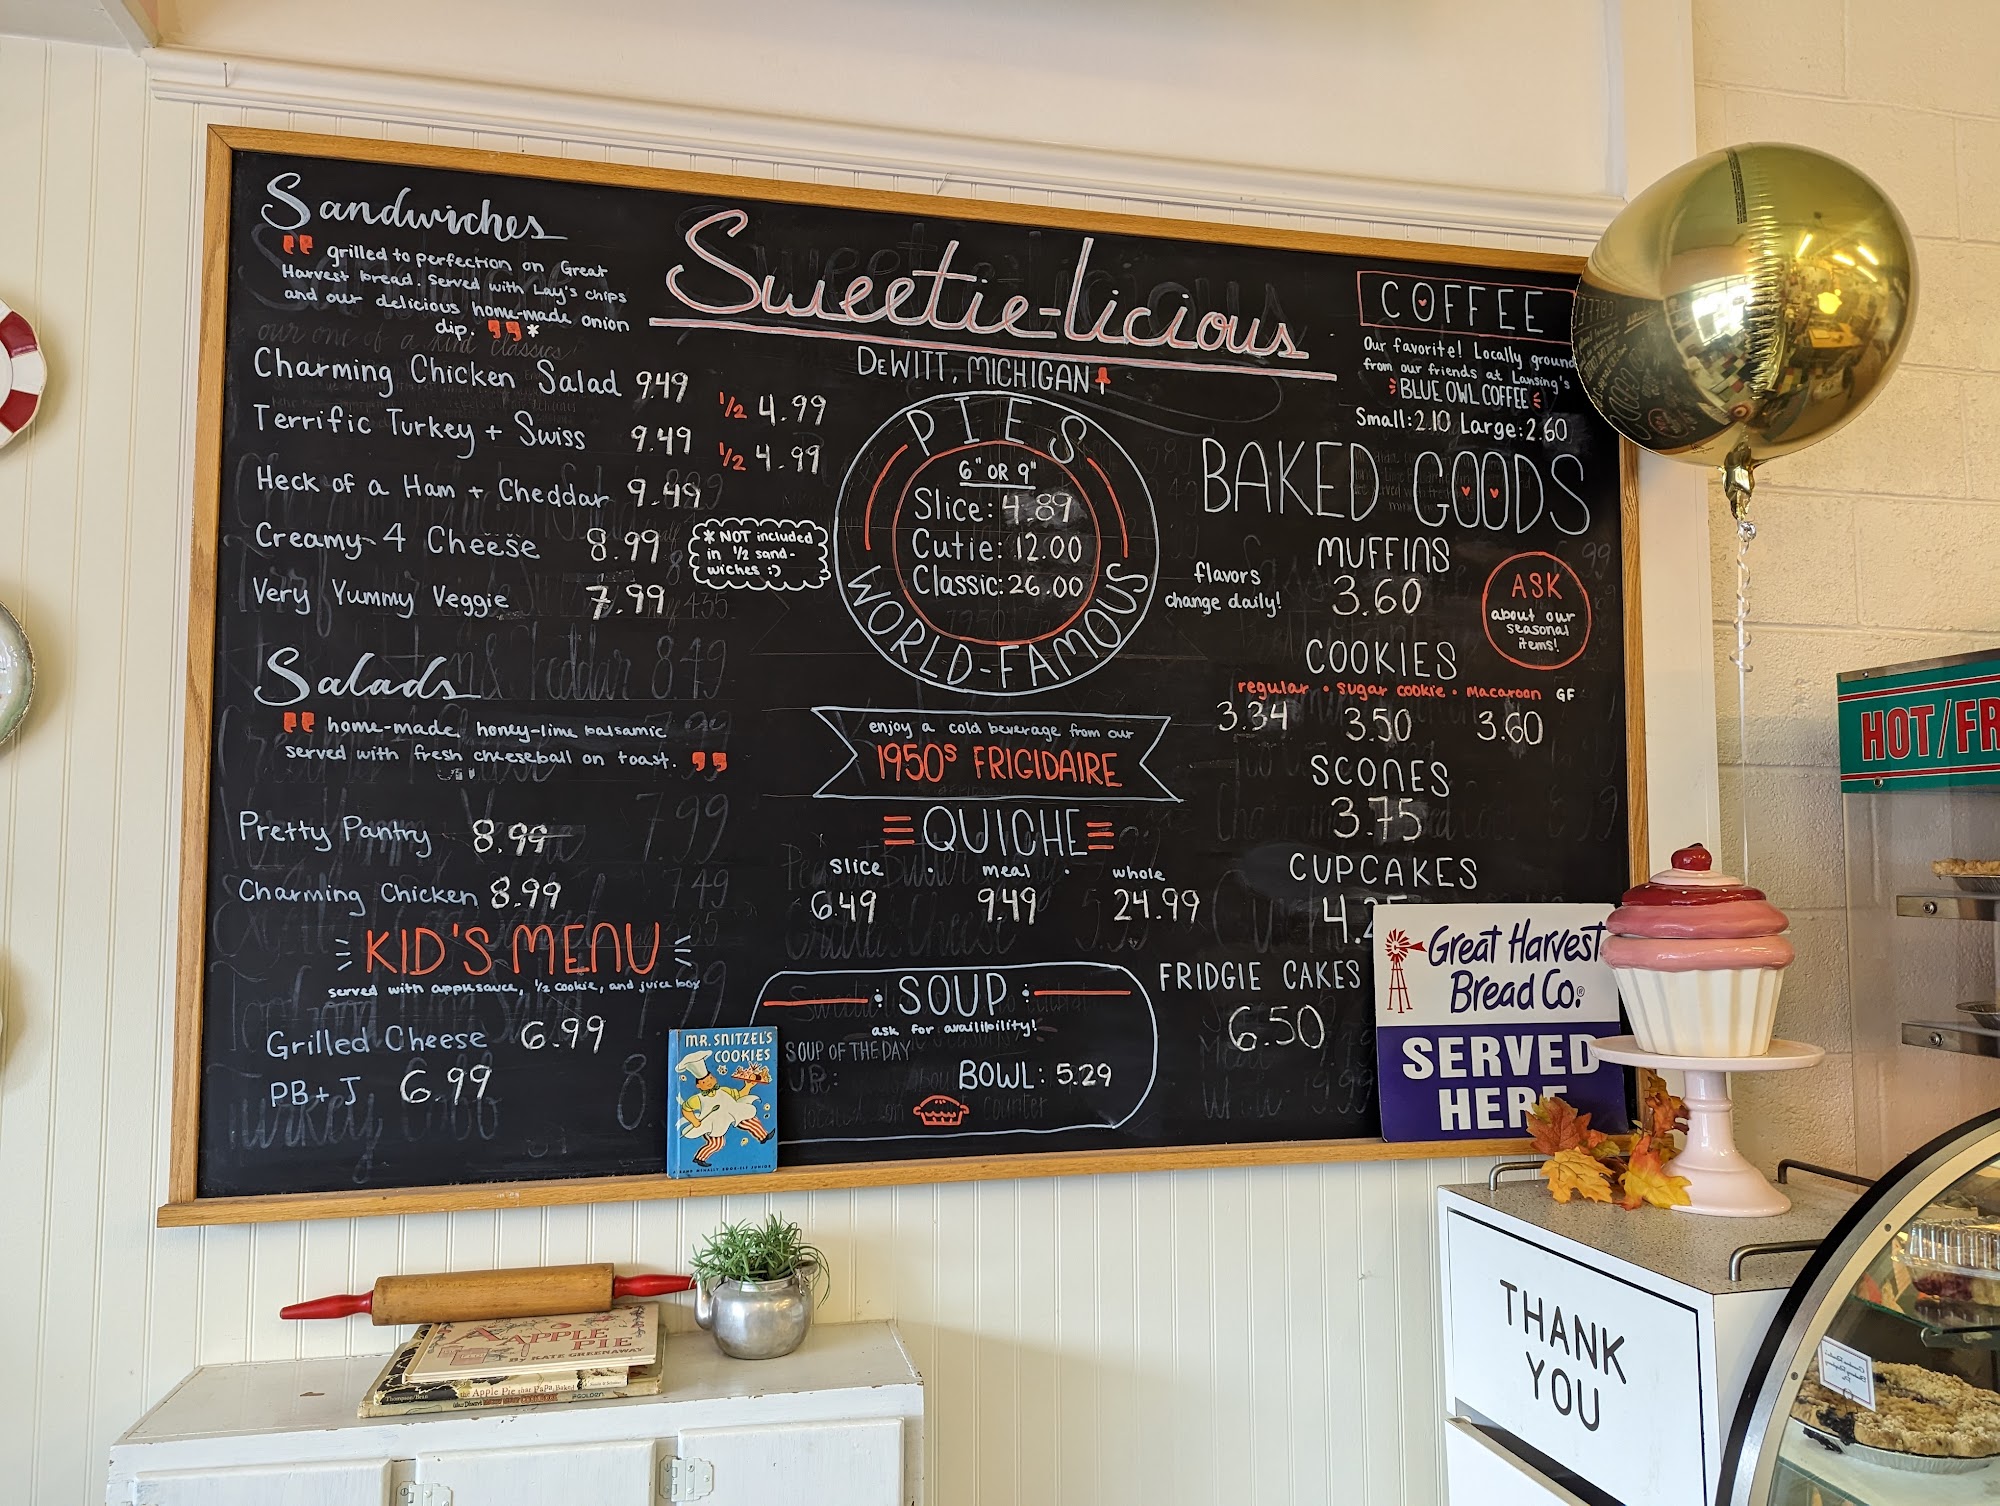 Sandwiches
grilled to perfection on Great
Harvest bread. Served with Lay's chips
and our delicious home-made onion
dip. *
our one of a kind classics
Charming Chicken Salad 9.49 1/2 4.99
Terrific Turkey + Swiss 9.49 1/2 4.99
Heck of a Ham + Cheddar 9.49
Creamy 4 Cheese 8.99
Very Yummy Veggie 7.99
* NOT included
in 1/2 sand-
wiches :)
Salads
home-made honey-lime balsamic
served with fresh cheeseball on toast.
Pretty Pantry 8.99
Charming Chicken 8.99
KID'S MENU
served with applesauce, 1/2 cookie, and juice box
Grilled Cheese 6.99
PB + J 6.99
Sweetie-licious
DeWITT, MICHIGAN
PIES
6" OR 9"
Slice: 4.89
Cutie: 12.00
Classic: 26.00
WORLD-FAMOUS
enjoy a cold beverage from our
1950s FRIGIDAIRE
QUICHE
slice · meal · whole
6.49 9.49 24.99
SOUP
ask for availibility!
SOUP OF THE DAY
BOWL: 5.29
counter
COFFEE
Our favorite! Locally ground
from our friends at Lansing's
BLUE OWL COFFEE
Small: 2.10 Large: 2.60
BAKED GOODS
MUFFINS
flavors
change daily!
3.60
ASK
about our
seasonal
items!
COOKIES
regular · sugar cookie · macaroon GF
3.34 3.50 3.60
SCONES
3.75
CUPCAKES
4.2
FRIDGIE CAKES
6.50
MR. SNITZEL'S
COOKIES
Great Harvest
Bread Co.®
SERVED
HERE
HOT/FR
THANK
YOU
A APPLE
PIE
By KATE GREENAWAY
the Apple Pie that Papa Baked
GOLDEN